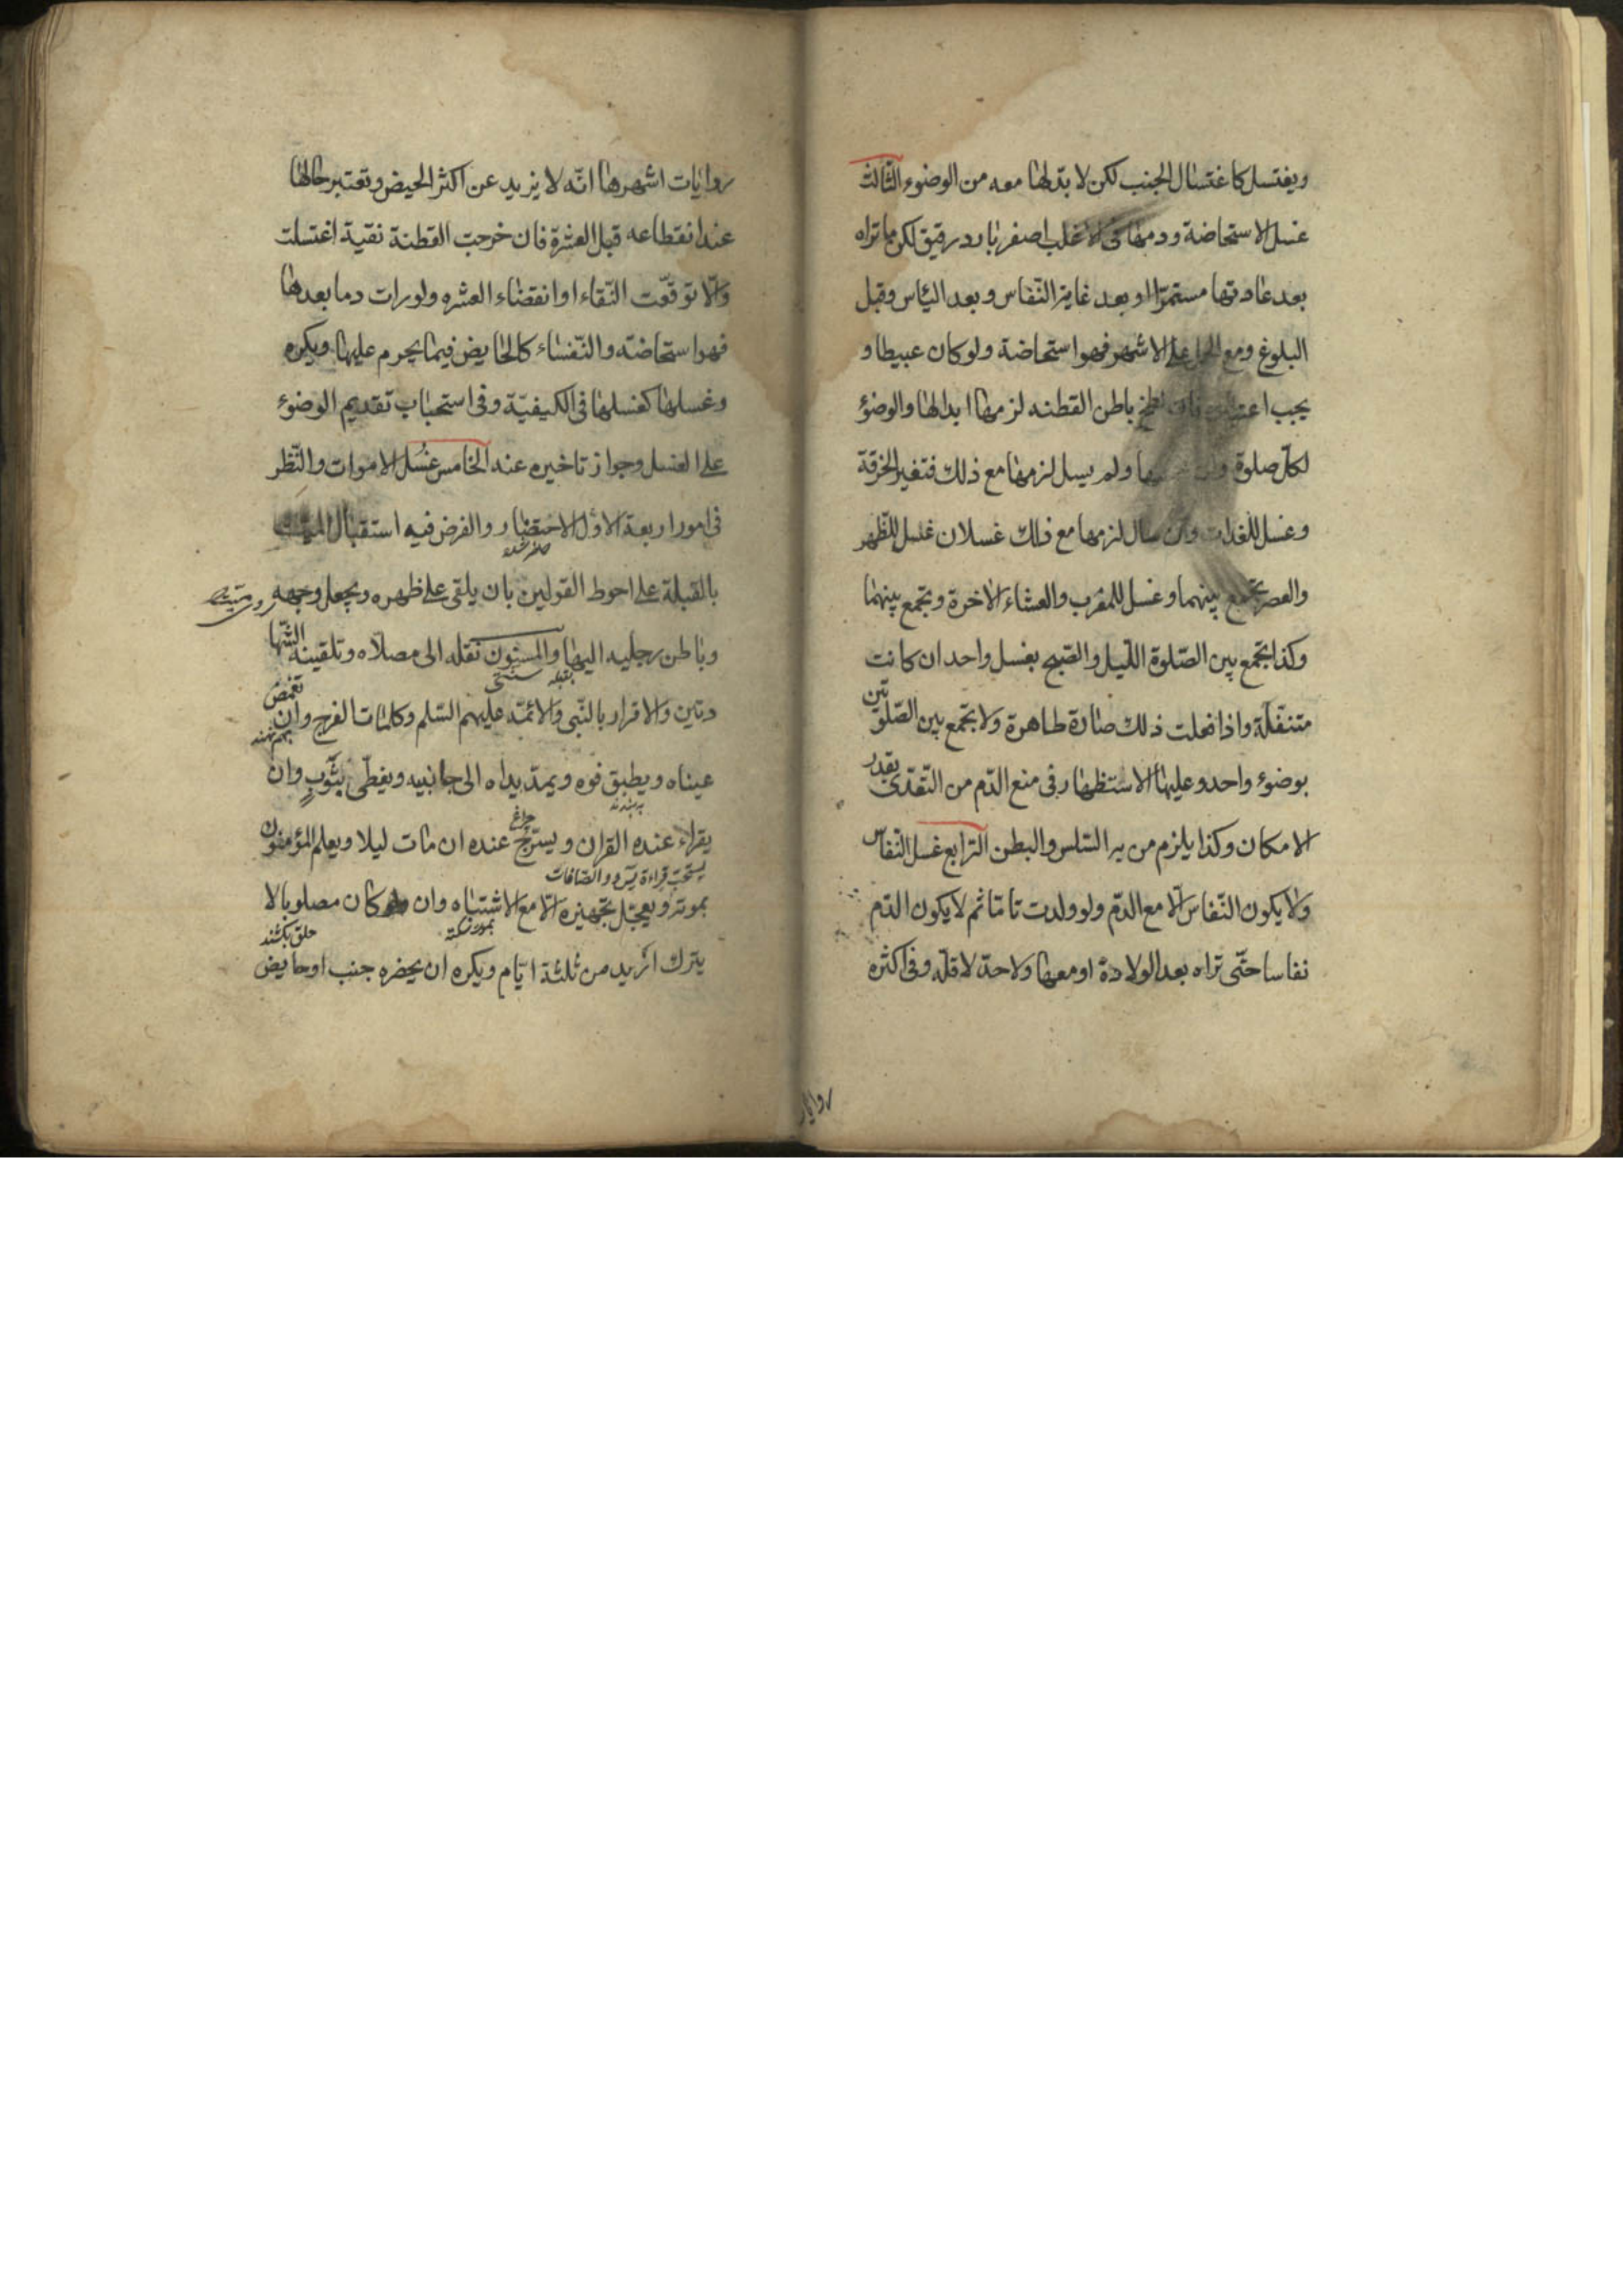 ويغتسل كاغتسال الجنب لكن لا بد لها معه من الوضوء الثالث
غسل الاستحاضة ودمها فى الاغلب اصفر بارد رقيق لكن ما تراه
بعد عادتها مستمرّا او بعد غاية النّفاس وبعد الياس وقبل
البلوغ ومع الحمل على الاشهر فهو استحاضة ولو كان عبيطا و
يجب اعتباره فان لطخ باطن القطنه لزمها ابدالها والوضوء
لكلّ صلوة وان ولم يسل لزمها مع ذلك تغير الخرقة
وغسل للغداة وان سال لزمها مع ذلك غسلان غسل للظّهر
والعصر تجمع بينهما وغسل للمغرب والعشاء الاخرة وتجمع بينهما
وكذا تجمع بين الصّلوة اللّيل والصّبح بغسل واحد ان كانت
متنفّلة واذا فعلت ذلك صارة طاهرة ولا تجمع بين الصّلوتين
بوضوء واحد وعليها الاستظهار فى منع الدّم من التّعدّى بقدر
الامكان وكذا يلزم من به السّلس والبطن الرّابع غسل النّفاس
ولا يكون النّفاس الّا مع الدّم ولو ولدت تامّا ثم لا يكون الدّم
نفاسا حتّى تراه بعد الولادة او معها ولا حدّ لاقلّه وفى اكثره
روايات
روايات اشهرها انّه لا يزيد عن اكثر الحيض وتعتبر حالها
عند انقطاعه قبل العشرة فان خرجت القطنة نقية اغتسلت
والّا توقّعت النّقاء او انقضاء العشره ولو رات دما بعدها
فهو استحاضته والنّفساء كالحايض فيما يحرم عليها ويكره
وغسلها كغسلها فى الكيفيّة وفى استحباب تقديم الوضوء
على الغسل وجواز تاخيره عنه الخامس غسل الاموات والنّظر
فى امور اربعة الاوّل الاحتضار والفرض فيه استقبال الميّت
حاضر شده
بالقبلة على احوط القولين بان يلقى على ظهره ويجعل وجهه
وباطن رجليه اليها والمسنون نقله الى مصلاه وتلقينه الشّها
دتين والاقرار بالنّبى والائمّة عليهم السّلم وكلمات الفرج وان تغمض
بهم نهند
عيناه ويطبق فوه ويمدّ يداه الى جانبيه ويغطّى بثوبٍ وان
چراغ
يقراء عنده القران ويسرّج عنده ان مات ليلا ويعلم المؤمنون
يستحبّ قراءة يس والصّافات
بموته ويعجّل تجهيزه الّا مع الاشتباه وان كان مصلوبا لا
يترك ازيد من ثلثة ايّام ويكره ان يحضره جنب او حايض